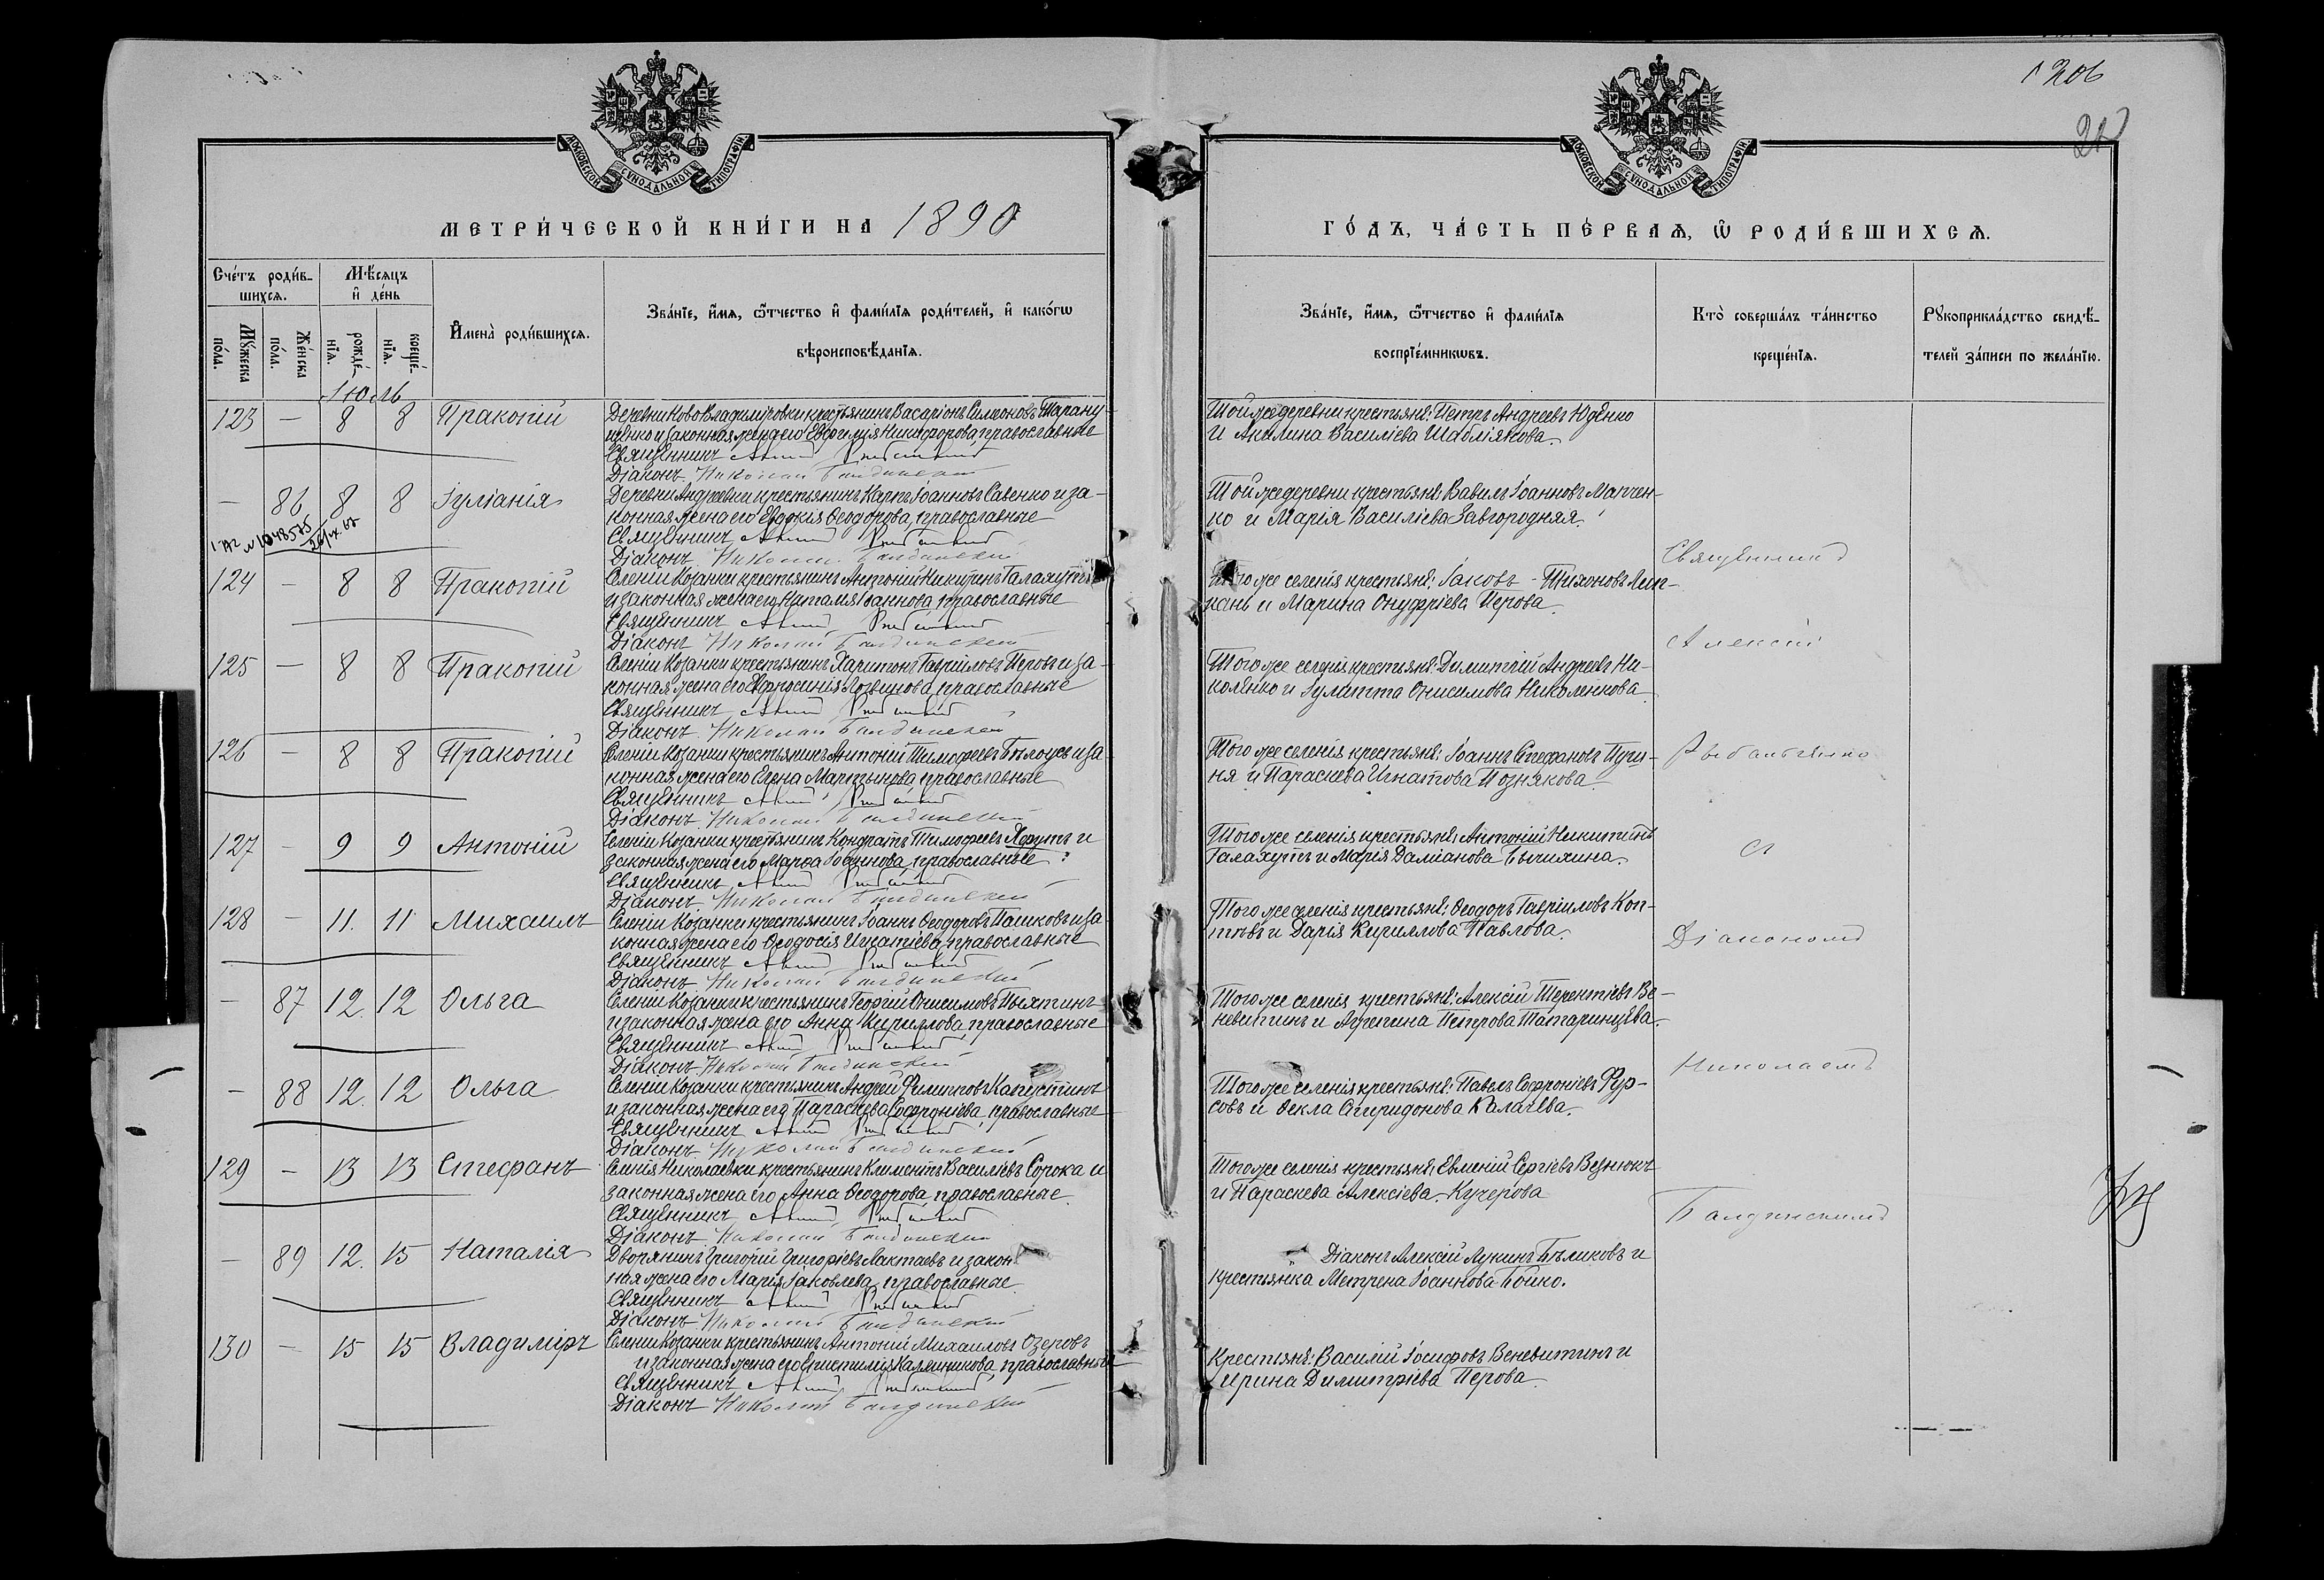 206
МОСКОВСКОЙ СѴНОДАЛЬНОЙ ТИПОГРАФІИ
МОСКОВСКОЙ СѴНОДАЛЬНОЙ ТИПОГРАФІИ
МЕТРИ́ЧЕСКОЙ КНИ́ГИ НА 1890
ГО́ДЪ, ЧА́СТЬ ПЕ́РВАѦ, Ѡ҆ РОДИ́ВШИХСѦ.
Сче́тъ роди́в-
шихсѧ.
Мꙋ́жеска
по́ла.
Же́нска
по́ла.
Мѣ́сѧцъ
и҆ де́нь
рожде́-
нїѧ.
креще́-
нїѧ.
И҆мена̀ роди́вшихсѧ.
Зва́нїе, и҆́мѧ, ѻ҆́тчество и҆ фами́лїѧ роди́телей, и҆ како́гѡ
вѣроисповѣ́данїѧ.
Зва́нїе, и҆́мѧ, ѻ҆́тчество и҆ фами́лїѧ
воспрїе́мникѡвъ.
Кто̀ соверша́лъ та́инство
креще́нїѧ.
Рꙋкоприкла́дство свидѣ́-
телей за́писи по жела́нїю.
Іюль
123 — 8 8 Пракопій
Деревни Ново Владиміровки крестьянинъ Васаріонъ Симеоновъ Тарану-
щенко и законная жена его Евфимія Никифорова, православные
Священникъ
Діаконъ Николай Балдинскій
Той же деревни крестьяне: Петръ Андреевъ Юденко
и Акилина Василіева Шабліякова.
— 86 8 8 Іуліанія
Деревни Андреевки крестьянинъ Карпъ Іоанновъ Савенко и за-
конная жена его Евдокія Ѳеодорова, православные
Священникъ
Діаконъ Николай Балдинскій
Той же деревни крестьяне: Вавилъ Іоанновъ Марчен-
ко и Марія Василіева Завгородняя.
124 — 8 8 Пракопій
Селенія Козанки крестьянинъ Антоній Никитинъ Галахутъ
и законная жена его Наталія Іоаннова, православные
Священникъ
Діаконъ Николай Балдинскій
Того же селенія крестьяне: Іаковъ Тихоновъ Лип-
кань и Марина Онуфріева Перова.
125 — 8 8 Пракопій
Селенія Козанки крестьянинъ Харитонъ Гавріиловъ Перовъ и за-
конная жена его Евфросинія Логвинова, православные
Священникъ
Діаконъ Николай Балдинскій
Того же селенія крестьяне: Димитрій Андреевъ Ни-
коленко и Іулитта Онисимова Николенкова
126 — 8 8 Пракопій
Селенія Козанки крестьянинъ Антоній Тимофеевъ Бѣлоусъ и за-
конная жена его Елена Мартынова, православные
Священникъ
Діаконъ Николай Балдинскій
Того же селенія крестьяне: Іоаннъ Стефановъ Пучи-
ня и Параскева Игнатова Познякова.
127 — 9 9 Антоній
Селенія Козанки крестьянинъ Кондратъ Тимофеевъ и
законная жена его Марѳа Іоаннова, православные
Священникъ
Діаконъ Николай Балдинскій
Того же селенія крестьяне: Антоній Никитинъ
Галахутъ и Марія Даміанова Бычихина.
128 — 11. 11 Михаилъ
Селенія Козанки крестьянинъ Іоаннъ Ѳеодоровъ Пашковъ и за-
конная жена его Ѳеодосія Игнатіева, православные
Священникъ
Діаконъ Николай Балдинскій
Того же селенія крестьяне: Ѳеодоръ Гавріиловъ Коп-
тевъ и Дарія Кириллова Павлова.
— 87 12. 12 Ольга
Селенія Козанки крестьянинъ Георгій Онисимовъ Пыхтинъ
и законная жена его Анна Кириллова, православные
Священникъ
Діаконъ Николай Балдинскій
Того же селенія крестьяне: Алексій Терентіевъ Ве-
невитинъ и Агрепина Петрова Татаринцева.
— 88 12. 12 Ольга
Селенія Козанки крестьянинъ Андрей Филиповъ Капустинъ
и законная жена его Параскева Софроніева, православные
Священникъ
Діаконъ Николай Балдинскій
Того же селенія крестьяне: Павелъ Софроніевъ Фур-
совъ и Ѳекла Спиридонова Калачева.
129 — 13 13 Стефанъ
Селенія Николаевки крестьянинъ Климентъ Василіевъ Сорока и
законная жена его Анна Ѳеодорова, православные.
Священникъ
Діаконъ Николай Балдинскій
Того же селенія крестьяне: Евмений Сергіевъ Везнюкъ
и Параскева Алексіева Кучерова
— 89 12. 15 Наталія
Дворянинъ Григорій Григоріевъ Лактаевъ и закон-
ная жена его Марія Іаковлева, православные.
Священникъ
Діаконъ Николай Балдинскій
Діаконъ Алексій Лукинъ Бѣликовъ и
крестьянка Метрена Іоаннова Бойко.
130 — 15 15 Владиміръ
Селенія Козанки крестьянинъ Антоній Михаиловъ Озеровъ
и законная жена его Калинникова, православные
Священникъ
Діаконъ Николай Балдинскій
Крестьяне: Василій Іосифовъ Веневитинъ и
Ирина Димитріева Перова.
Священникъ
Алексій
Рыбальченко
съ
Діакономъ
Николаемъ
Балдинскимъ